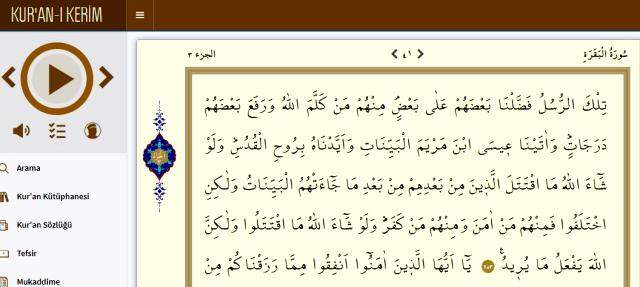 KUR'AN-I KERİM
Arama
Kur'an Kütüphanesi
Kur'an Sözlüğü
Tefsir
Mukaddime
سُورَةُ الْبَقَرَةِ
٤١
الجزء ٣
تِلْكَ الرُّسُلُ فَضَّلْنَا بَعْضَهُمْ عَلٰى بَعْضٍۢ مِنْهُمْ مَنْ كَلَّمَ اللّٰهُ وَرَفَعَ بَعْضَهُمْ
دَرَجَاتٍۜ وَاٰتَيْنَا عٖيسَى ابْنَ مَرْيَمَ الْبَيِّنَاتِ وَاَيَّدْنَاهُ بِرُوحِ الْقُدُسِۜ وَلَوْ
شَٓاءَ اللّٰهُ مَا اقْتَتَلَ الَّذٖينَ مِنْ بَعْدِهِمْ مِنْ بَعْدِ مَا جَٓاءَتْهُمُ الْبَيِّنَاتُ وَلٰكِنِ
اخْتَلَفُوا فَمِنْهُمْ مَنْ اٰمَنَ وَمِنْهُمْ مَنْ كَفَرَۜ وَلَوْ شَٓاءَ اللّٰهُ مَا اقْتَتَلُوا وَلٰكِنَّ
اللّٰهَ يَفْعَلُ مَا يُرٖيدُ۟ ٢٥٣ يَٓا اَيُّهَا الَّذٖينَ اٰمَنُٓوا اَنْفِقُوا مِمَّا رَزَقْنَاكُمْ مِنْ